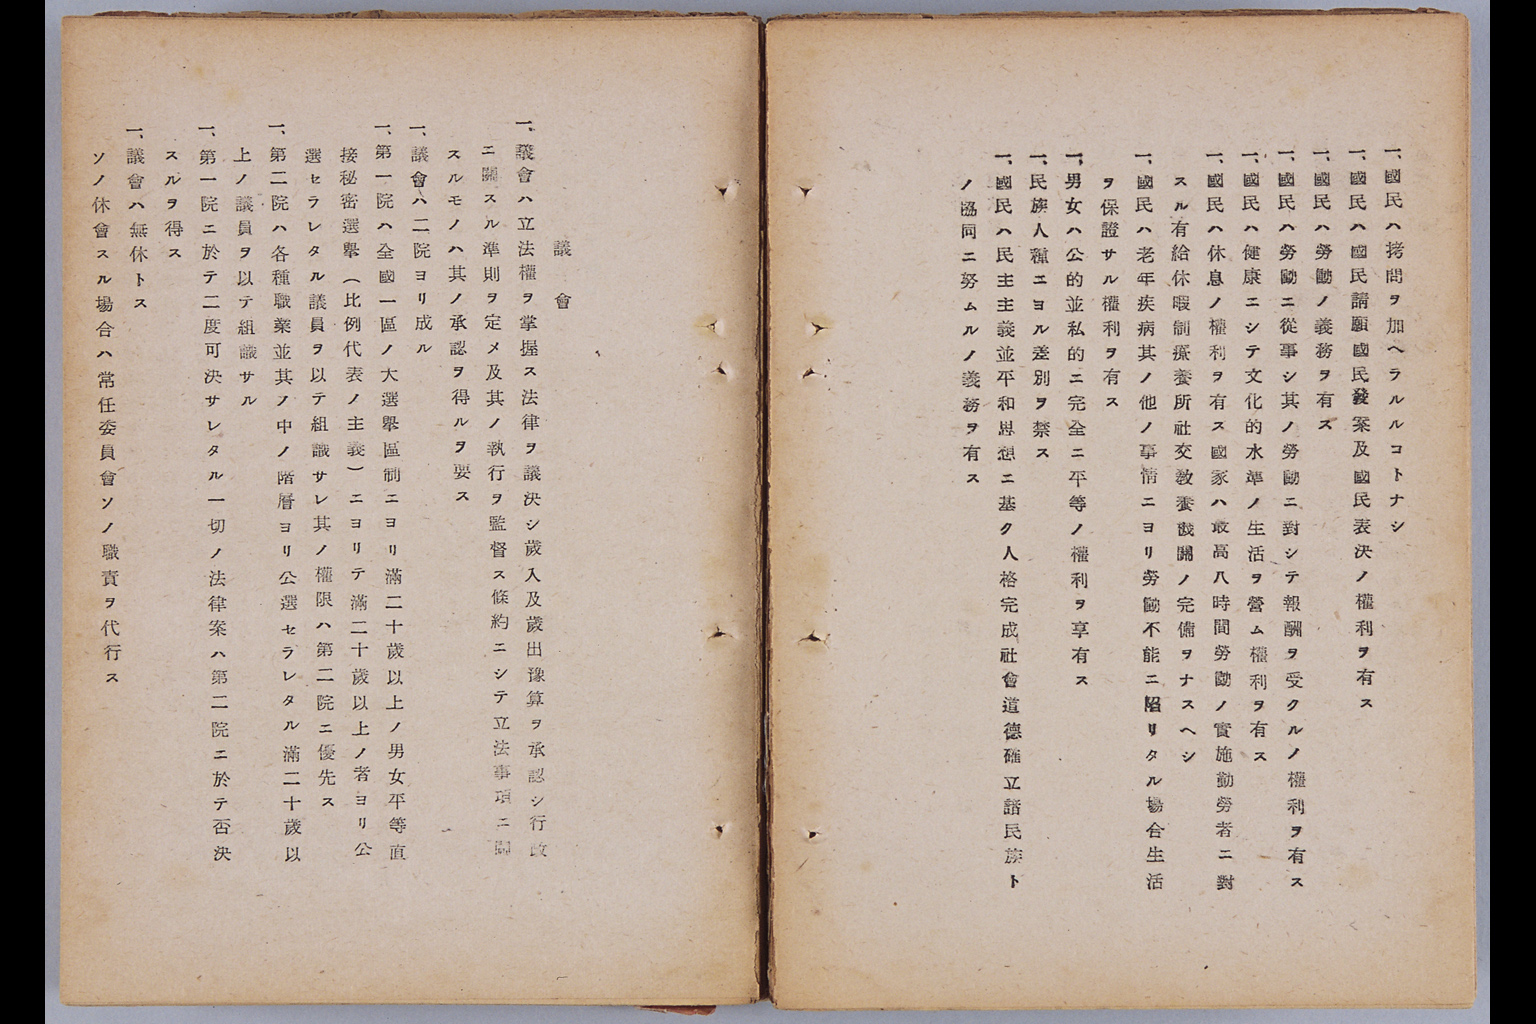 一、國民ハ拷問ヲ加ヘラルルコトナシ
一、國民ハ國民請願國民發案及國民表決ノ權利ヲ有ス
一、國民ハ勞働ノ義務ヲ有ス
一、國民ハ勞働ニ從事シ其ノ勞働ニ對シテ報酬ヲ受クルノ權利ヲ有ス
一、國民ハ健康ニシテ文化的水準ノ生活ヲ營ム權利ヲ有ス
一、國民ハ休息ノ權利ヲ有ス國家ハ最高八時間勞働ノ實施勤勞者ニ對
スル有給休暇制療養所社交敎養機關ノ完備ヲナスヘシ
一、國民ハ老年疾病其ノ他ノ事情ニヨリ勞働不能ニ陷リタル場合生活
ヲ保證サル權利ヲ有ス
一、男女ハ公的並私的ニ完全ニ平等ノ權利ヲ享有ス
一、民族人種ニヨル差別ヲ禁ス
一、國民ハ民主主義並平和思想ニ基ク人格完成社會道德確立諸民族ト
ノ協同ニ努ムルノ義務ヲ有ス
議會
一、議會ハ立法權ヲ掌握ス法律ヲ議決シ歲入及歲出豫算ヲ承認シ行政
ニ關スル準則ヲ定メ及其ノ執行ヲ監督ス條約ニシテ立法事項ニ關
スルモノハ其ノ承認ヲ得ルヲ要ス
一、議會ハ二院ヨリ成ル
一、第一院ハ全國一區ノ大選擧區制ニヨリ滿二十歲以上ノ男女平等直
接秘密選擧（比例代表ノ主義）ニヨリテ滿二十歲以上ノ者ヨリ公
選セラレタル議員ヲ以テ組織サレ其ノ權限ハ第二院ニ優先ス
一、第二院ハ各種職業並其ノ中ノ階層ヨリ公選セラレタル滿二十歲以
上ノ議員ヲ以テ組織サル
一、第一院ニ於テ二度可決サレタル一切ノ法律案ハ第二院ニ於テ否決
スルヲ得ス
一、議會ハ無休トス
ソノ休會スル場合ハ常任委員會ソノ職責ヲ代行ス